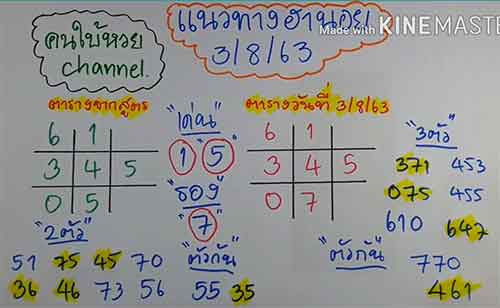 คนใบ้หวย
channel.
แนวทางฮานอย
3/8/63
Made with KINEMASTE
ตารางจากสูตร
6 1
3 4 5
0 5
"เด่น"
1 5
"รอง"
7
ตารางวันที่ 3/8/63
6 1
3 4 5
0 7
"3ตัว"
371 453
075 455
610 647
"2ตัว"
51 75 45 70
36 46 73 56
"ตัวกัน"
55 35
"ตัวกัน"
770
461